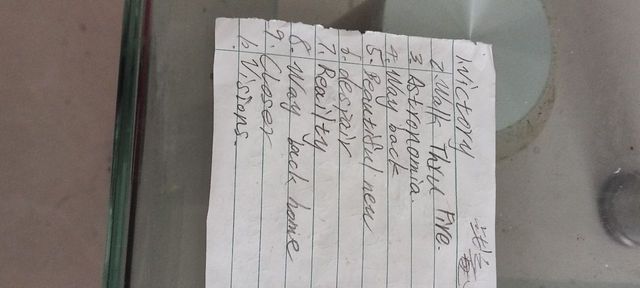 1. Victory
2. Walk Thru Fire.
3 Astronomia.
4. Way back
5. Beautiful new
6. despair
7. Reailty
8. Way back home
9. Closer
1. Visions.